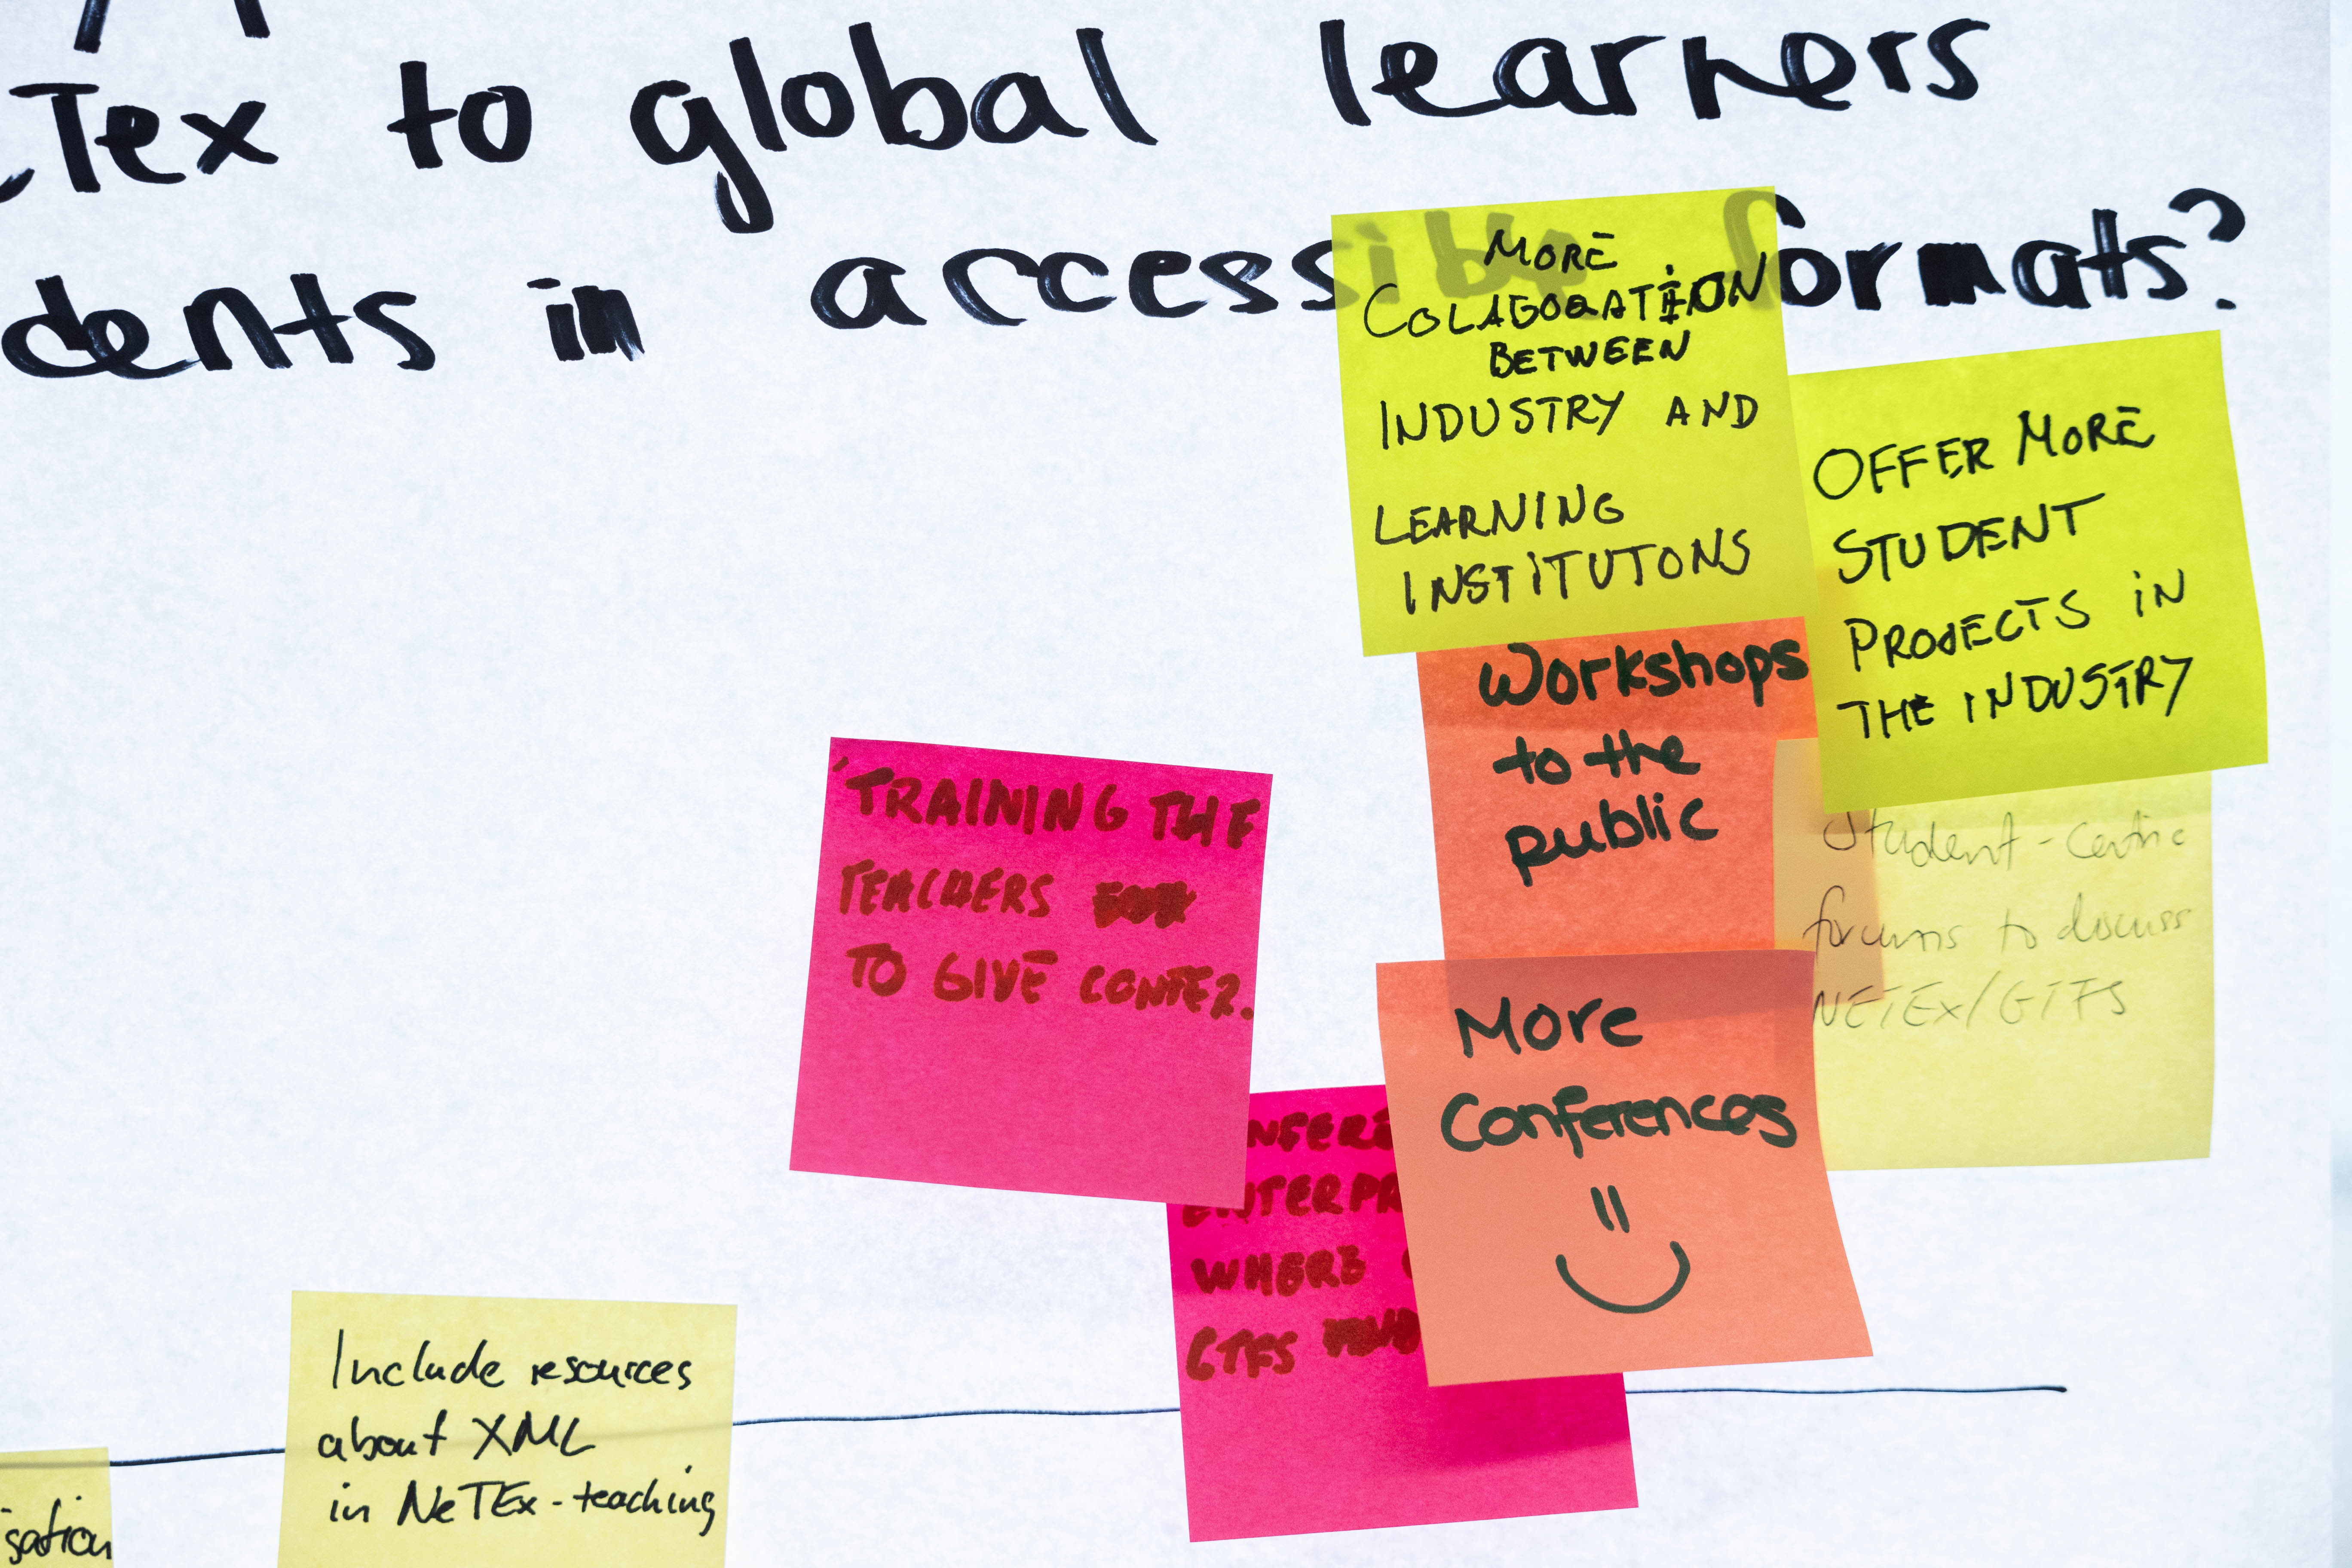 Tex to global learners
dents in accessible formats?
MORE
COLABORATION
BETWEEN
INDUSTRY AND
LEARNING
INSTITUTONS
OFFER MORE
STUDENT
PROJECTS IN
THE INDUSTRY
Workshops
to the
public
Student-centric
forums to discuss
NETEx/GTFS
TRAINING THE
TEACHERS
TO GIVE CONFER.
More
Conferences
NFERE
ENTERPR
WHERE
GTFS
Include resources
about XML
in NeTEx-teaching
sation